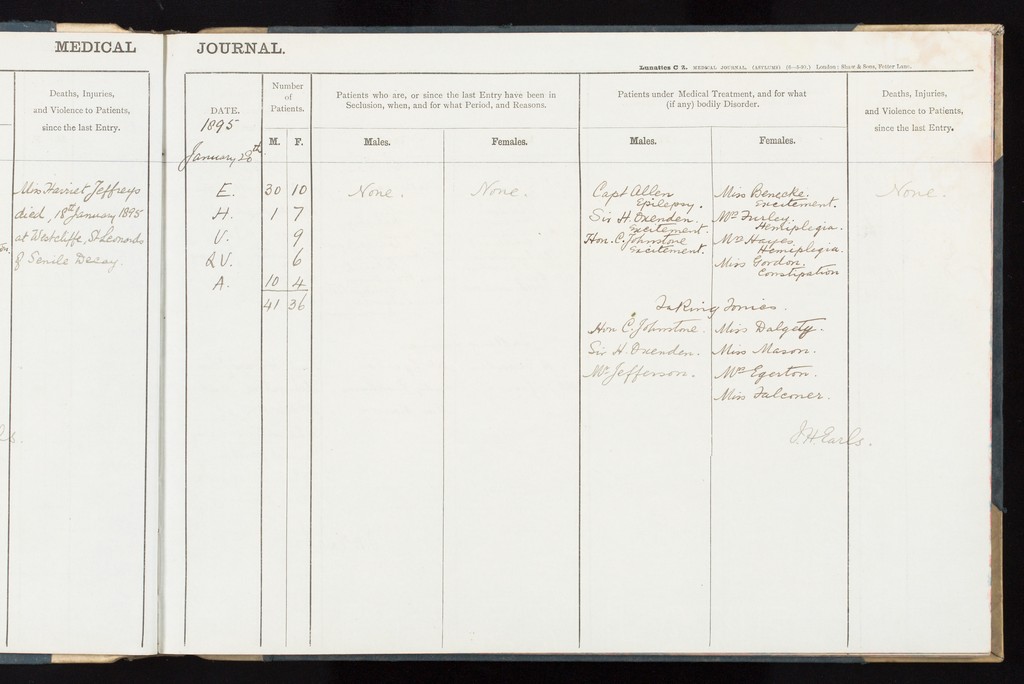 MEDICAL
Deaths, Injuries,
and Violence to Patients,
since the last Entry.
Mrs Harriet Jeffreys
died, 18th January 1895
at Westcliffe, St Leonards
of Senile Decay.
JOURNAL.
Lunatics C 2. MEDICAL JOURNAL. (ASYLUMS) London: Shaw & Sons, Fetter Lane.
DATE.
1895
January 26th
Number
of
Patients.
M. F.
Patients who are, or since the last Entry have been in
Seclusion, when, and for what Period, and Reasons.
Males. Females.
Patients under Medical Treatment, and for what
(if any) bodily Disorder.
Males. Females.
Deaths, Injuries,
and Violence to Patients,
since the last Entry.
E. 30 10 None. None. Capt Allen Miss Benecke. None.
Epilepsy. Excitement.
H. 1 7 Sir H. Oxenden. Mrs Furley.
Excitement. Hemiplegia.
V. 9 Hon. C. Johnstone Mrs Hayes.
Excitement. Hemiplegia.
2V. 6 Miss Gordon.
Constipation
A. 10 4
41 36
Taking Tonics.
Hon C. Johnstone. Miss Dalgety.
Sir H. Oxenden. Miss Mason.
Mr Jefferson. Mrs Egerton.
Miss Falconer.
J. H. Earls.